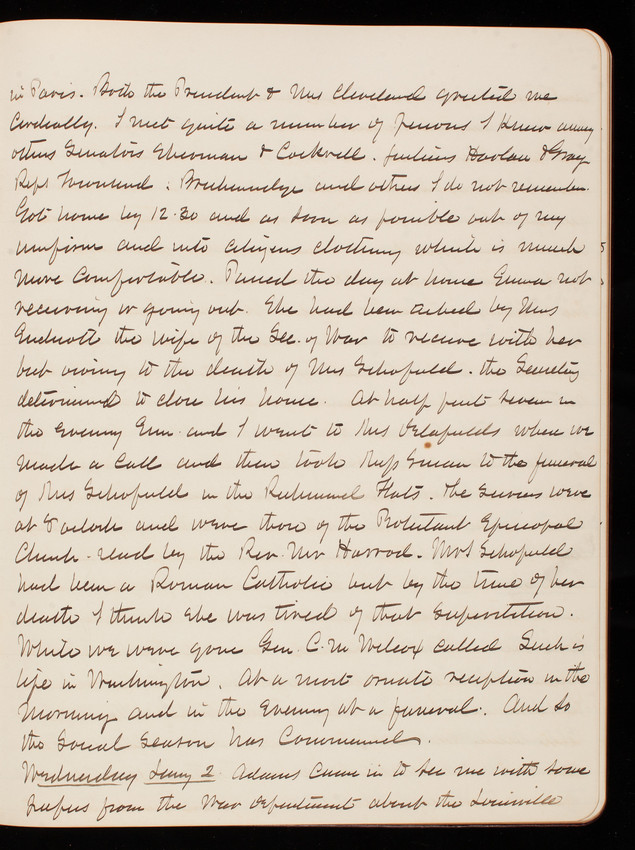 in Paris. Both the President & Mrs Cleveland greeted me
Cordially. I met quite a number of persons I knew among
others Senators Sherman & Cockrell. Justices Harlan & Gray
Reps Townsend, Breckenridge and others I do not remember.
Got home by 12.30 and as soon as possible out of my
uniform and into citizens clothing which is much
more comfortable. Passed the day at home Emma not
receiving or going out. She had been asked by Mrs
Endicott the wife of the Sec. of War to receive with her
but owing to the death of Mrs Schofield. the Secretary
determined to close his house. At half past seven in
the evening Em and I went to Mrs Delafields where we
made a call and then took Miss to the funeral
of Mrs Schofield in the Richmond Flats. The services were
at 8 oclock and were those of the Protestant Episcopal
Church - read by the Rev. Mr Harrod. Mrs Schofield
had been a Roman Catholic but by the time of her
death I think she was tired of that superstition.
While we were gone Gen. C. M Wilcox called Such is
life in Washington. At a most ornate reception in the
morning and in the evening at a funeral. And so
the Social Season has Commenced.
Wednesday Jany 2. Adams came in to see me with some
papers from the War Department about the Louisville